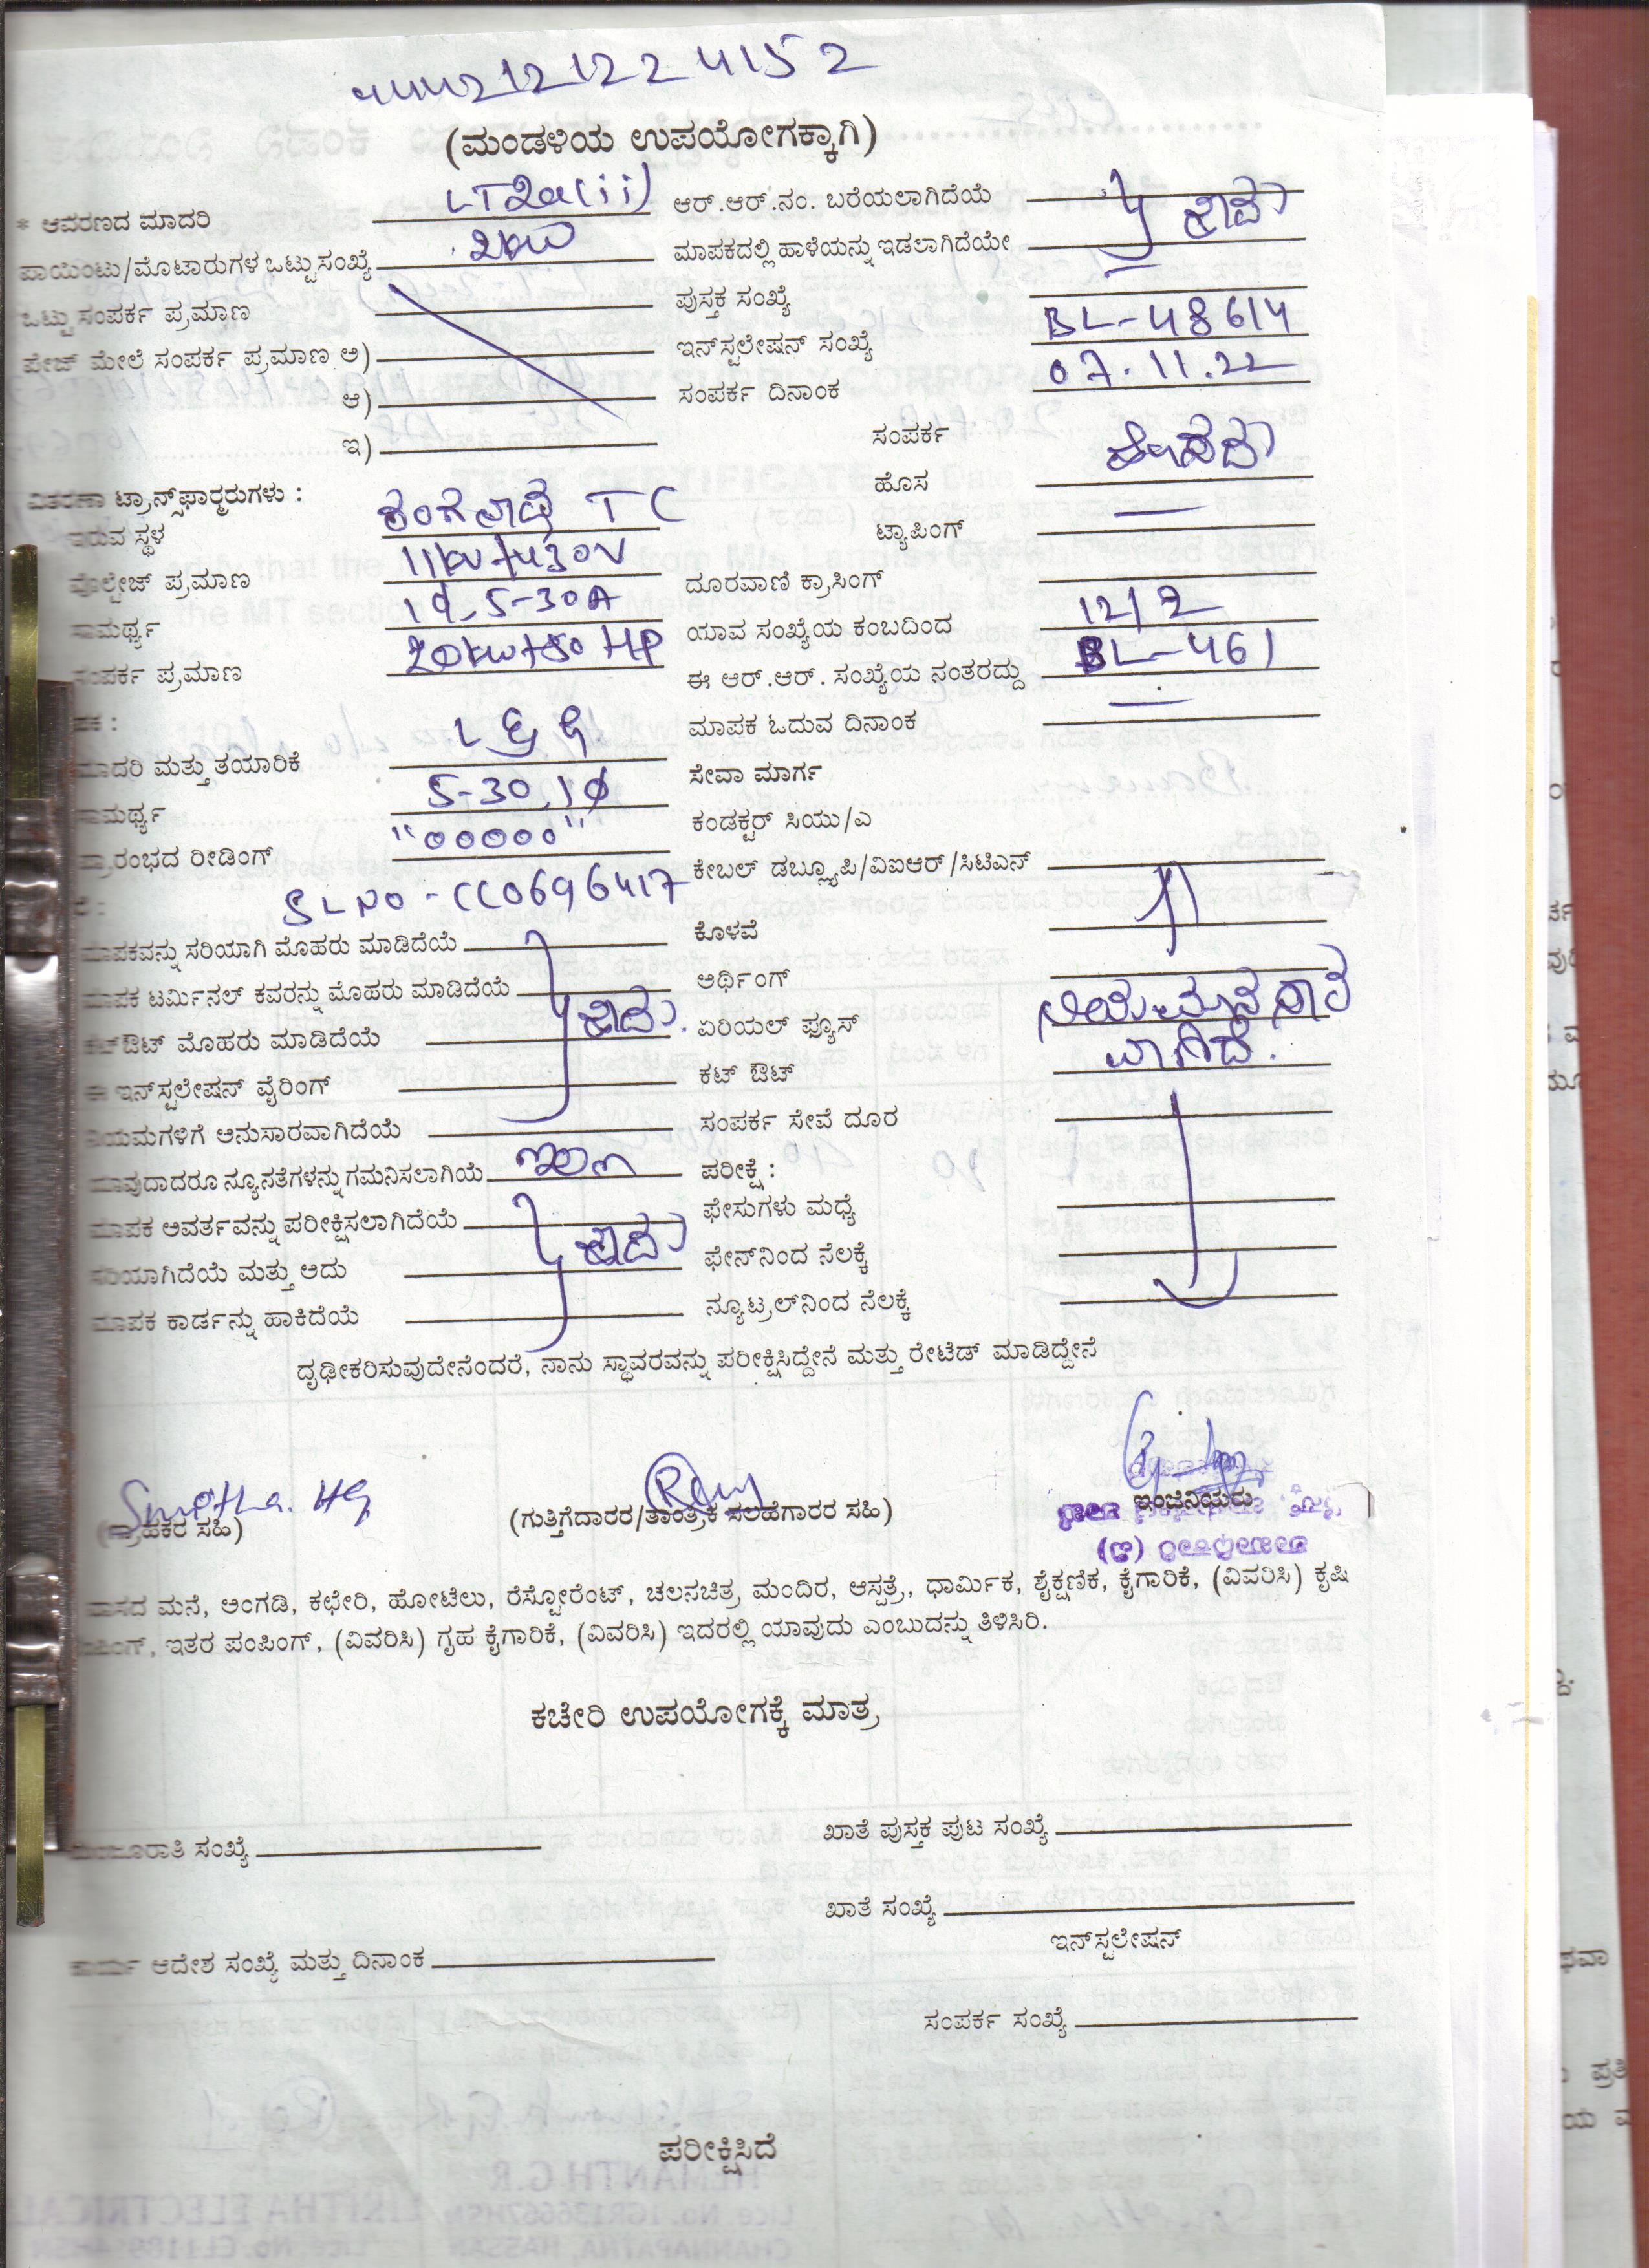 212122 4152
(ಮಂಡಳಿಯ ಉಪಯೋಗಕ್ಕಾಗಿ)
* ಆವರಣದ ಮಾದರಿ LT2a(ii) ಆರ್.ಆರ್.ನಂ. ಬರೆಯಲಾಗಿದೆಯೆ
ಪಾಯಿಂಟು/ಮೊಟಾರುಗಳ ಒಟ್ಟು ಸಂಖ್ಯೆ 2kw ಮಾಪಕದಲ್ಲಿ ಹಾಳೆಯನ್ನು ಇಡಲಾಗಿದೆಯೇ ಹೌದು
ಒಟ್ಟು ಸಂಪರ್ಕ ಪ್ರಮಾಣ ಪುಸ್ತಕ ಸಂಖ್ಯೆ —
ಪೇಜ್ ಮೇಲೆ ಸಂಪರ್ಕ ಪ್ರಮಾಣ ಅ) ಇನ್‌ಸ್ಟಲೇಷನ್ ಸಂಖ್ಯೆ BL-48614
ಆ) ಸಂಪರ್ಕ ದಿನಾಂಕ 07.11.22
ಇ) ಸಂಪರ್ಕ
ವಿತರಣಾ ಟ್ರಾನ್ಸ್‌ಫಾರ್ಮರುಗಳು : ಹೊಸ
ಇರುವ ಸ್ಥಳ TC ಟ್ಯಾಪಿಂಗ್ —
ವೊಲ್ಟೇಜ್ ಪ್ರಮಾಣ 11kv/430V ದೂರವಾಣಿ ಕ್ರಾಸಿಂಗ್
ಸಾಮರ್ಥ್ಯ 1φ, 5-30A ಯಾವ ಸಂಖ್ಯೆಯ ಕಂಬದಿಂದ 12/2
ಸಂಪರ್ಕ ಪ್ರಮಾಣ 20kw+80 HP ಈ ಆರ್.ಆರ್. ಸಂಖ್ಯೆಯ ನಂತರದ್ದು BL-461
ಮಾಪಕ ಓದುವ ದಿನಾಂಕ —
ಮಾದರಿ ಮತ್ತು ತಯಾರಿಕೆ L&G ಸೇವಾ ಮಾರ್ಗ
ಸಾಮರ್ಥ್ಯ 5-30, 1φ ಕಂಡಕ್ಟರ್ ಸಿಯು/ಎ
ಪ್ರಾರಂಭದ ರೀಡಿಂಗ್ "00000" ಕೇಬಲ್ ಡಬ್ಲ್ಯೂಪಿ/ವಿಐಆರ್/ಸಿಟಿಎನ್
SL NO - CC0696417
ಮಾಪಕವನ್ನು ಸರಿಯಾಗಿ ಮೊಹರು ಮಾಡಿದೆಯೆ ಕೊಳವೆ
ಮಾಪಕ ಟರ್ಮಿನಲ್ ಕವರನ್ನು ಮೊಹರು ಮಾಡಿದೆಯೆ ಹೌದು. ಅರ್ಥಿಂಗ್ ನಿಯಮಾನುಸಾರ
ಕಟ್‌ಔಟ್ ಮೊಹರು ಮಾಡಿದೆಯೆ ಏರಿಯಲ್ ಫ್ಯೂಸ್ ವಾಗಿದೆ.
ಈ ಇನ್‌ಸ್ಟಲೇಷನ್ ವೈರಿಂಗ್ ಕಟ್ ಔಟ್
ನಿಯಮಗಳಿಗೆ ಅನುಸಾರವಾಗಿದೆಯೆ ಸಂಪರ್ಕ ಸೇವೆ ದೂರ
ಯಾವುದಾದರೂ ನ್ಯೂನತೆಗಳನ್ನು ಗಮನಿಸಲಾಗಿಯೆ ಇಲ್ಲ ಪರೀಕ್ಷೆ :
ಮಾಪಕ ಅವರ್ತವನ್ನು ಪರೀಕ್ಷಿಸಲಾಗಿದೆಯೆ ಹೌದು ಫೇಸುಗಳು ಮಧ್ಯೆ
ಸರಿಯಾಗಿದೆಯೆ ಮತ್ತು ಅದು ಫೇನ್‌ನಿಂದ ನೆಲಕ್ಕೆ
ಮಾಪಕ ಕಾರ್ಡನ್ನು ಹಾಕಿದೆಯೆ ನ್ಯೂಟ್ರಲ್‌ನಿಂದ ನೆಲಕ್ಕೆ
ದೃಢೀಕರಿಸುವುದೇನೆಂದರೆ, ನಾನು ಸ್ಥಾವರವನ್ನು ಪರೀಕ್ಷಿಸಿದ್ದೇನೆ ಮತ್ತು ರೇಟೆಡ್ ಮಾಡಿದ್ದೇನೆ
Smitha. HG
(ಗ್ರಾಹಕರ ಸಹಿ) (ಗುತ್ತಿಗೆದಾರರ/ತಾಂತ್ರಿಕ ಸಲಹೆಗಾರರ ಸಹಿ) ಇಂಜಿನಿಯರು
ವಾಸದ ಮನೆ, ಅಂಗಡಿ, ಕಛೇರಿ, ಹೋಟೆಲು, ರೆಸ್ಟೋರೆಂಟ್, ಚಲನಚಿತ್ರ ಮಂದಿರ, ಆಸ್ಪತ್ರೆ, ಧಾರ್ಮಿಕ, ಶೈಕ್ಷಣಿಕ, ಕೈಗಾರಿಕೆ, (ವಿವರಿಸಿ) ಕೃಷಿ
ಪಂಪಿಂಗ್, ಇತರ ಪಂಪಿಂಗ್, (ವಿವರಿಸಿ) ಗೃಹ ಕೈಗಾರಿಕೆ, (ವಿವರಿಸಿ) ಇದರಲ್ಲಿ ಯಾವುದು ಎಂಬುದನ್ನು ತಿಳಿಸಿರಿ.
ಕಚೇರಿ ಉಪಯೋಗಕ್ಕೆ ಮಾತ್ರ
ಮಂಜೂರಾತಿ ಸಂಖ್ಯೆ ಖಾತೆ ಪುಸ್ತಕ ಪುಟ ಸಂಖ್ಯೆ
ಖಾತೆ ಸಂಖ್ಯೆ
ಇನ್‌ಸ್ಟಲೇಷನ್
ಕಾರ್ಯ ಆದೇಶ ಸಂಖ್ಯೆ ಮತ್ತು ದಿನಾಂಕ
ಸಂಪರ್ಕ ಸಂಖ್ಯೆ
ಪರೀಕ್ಷಿಸಿದೆ